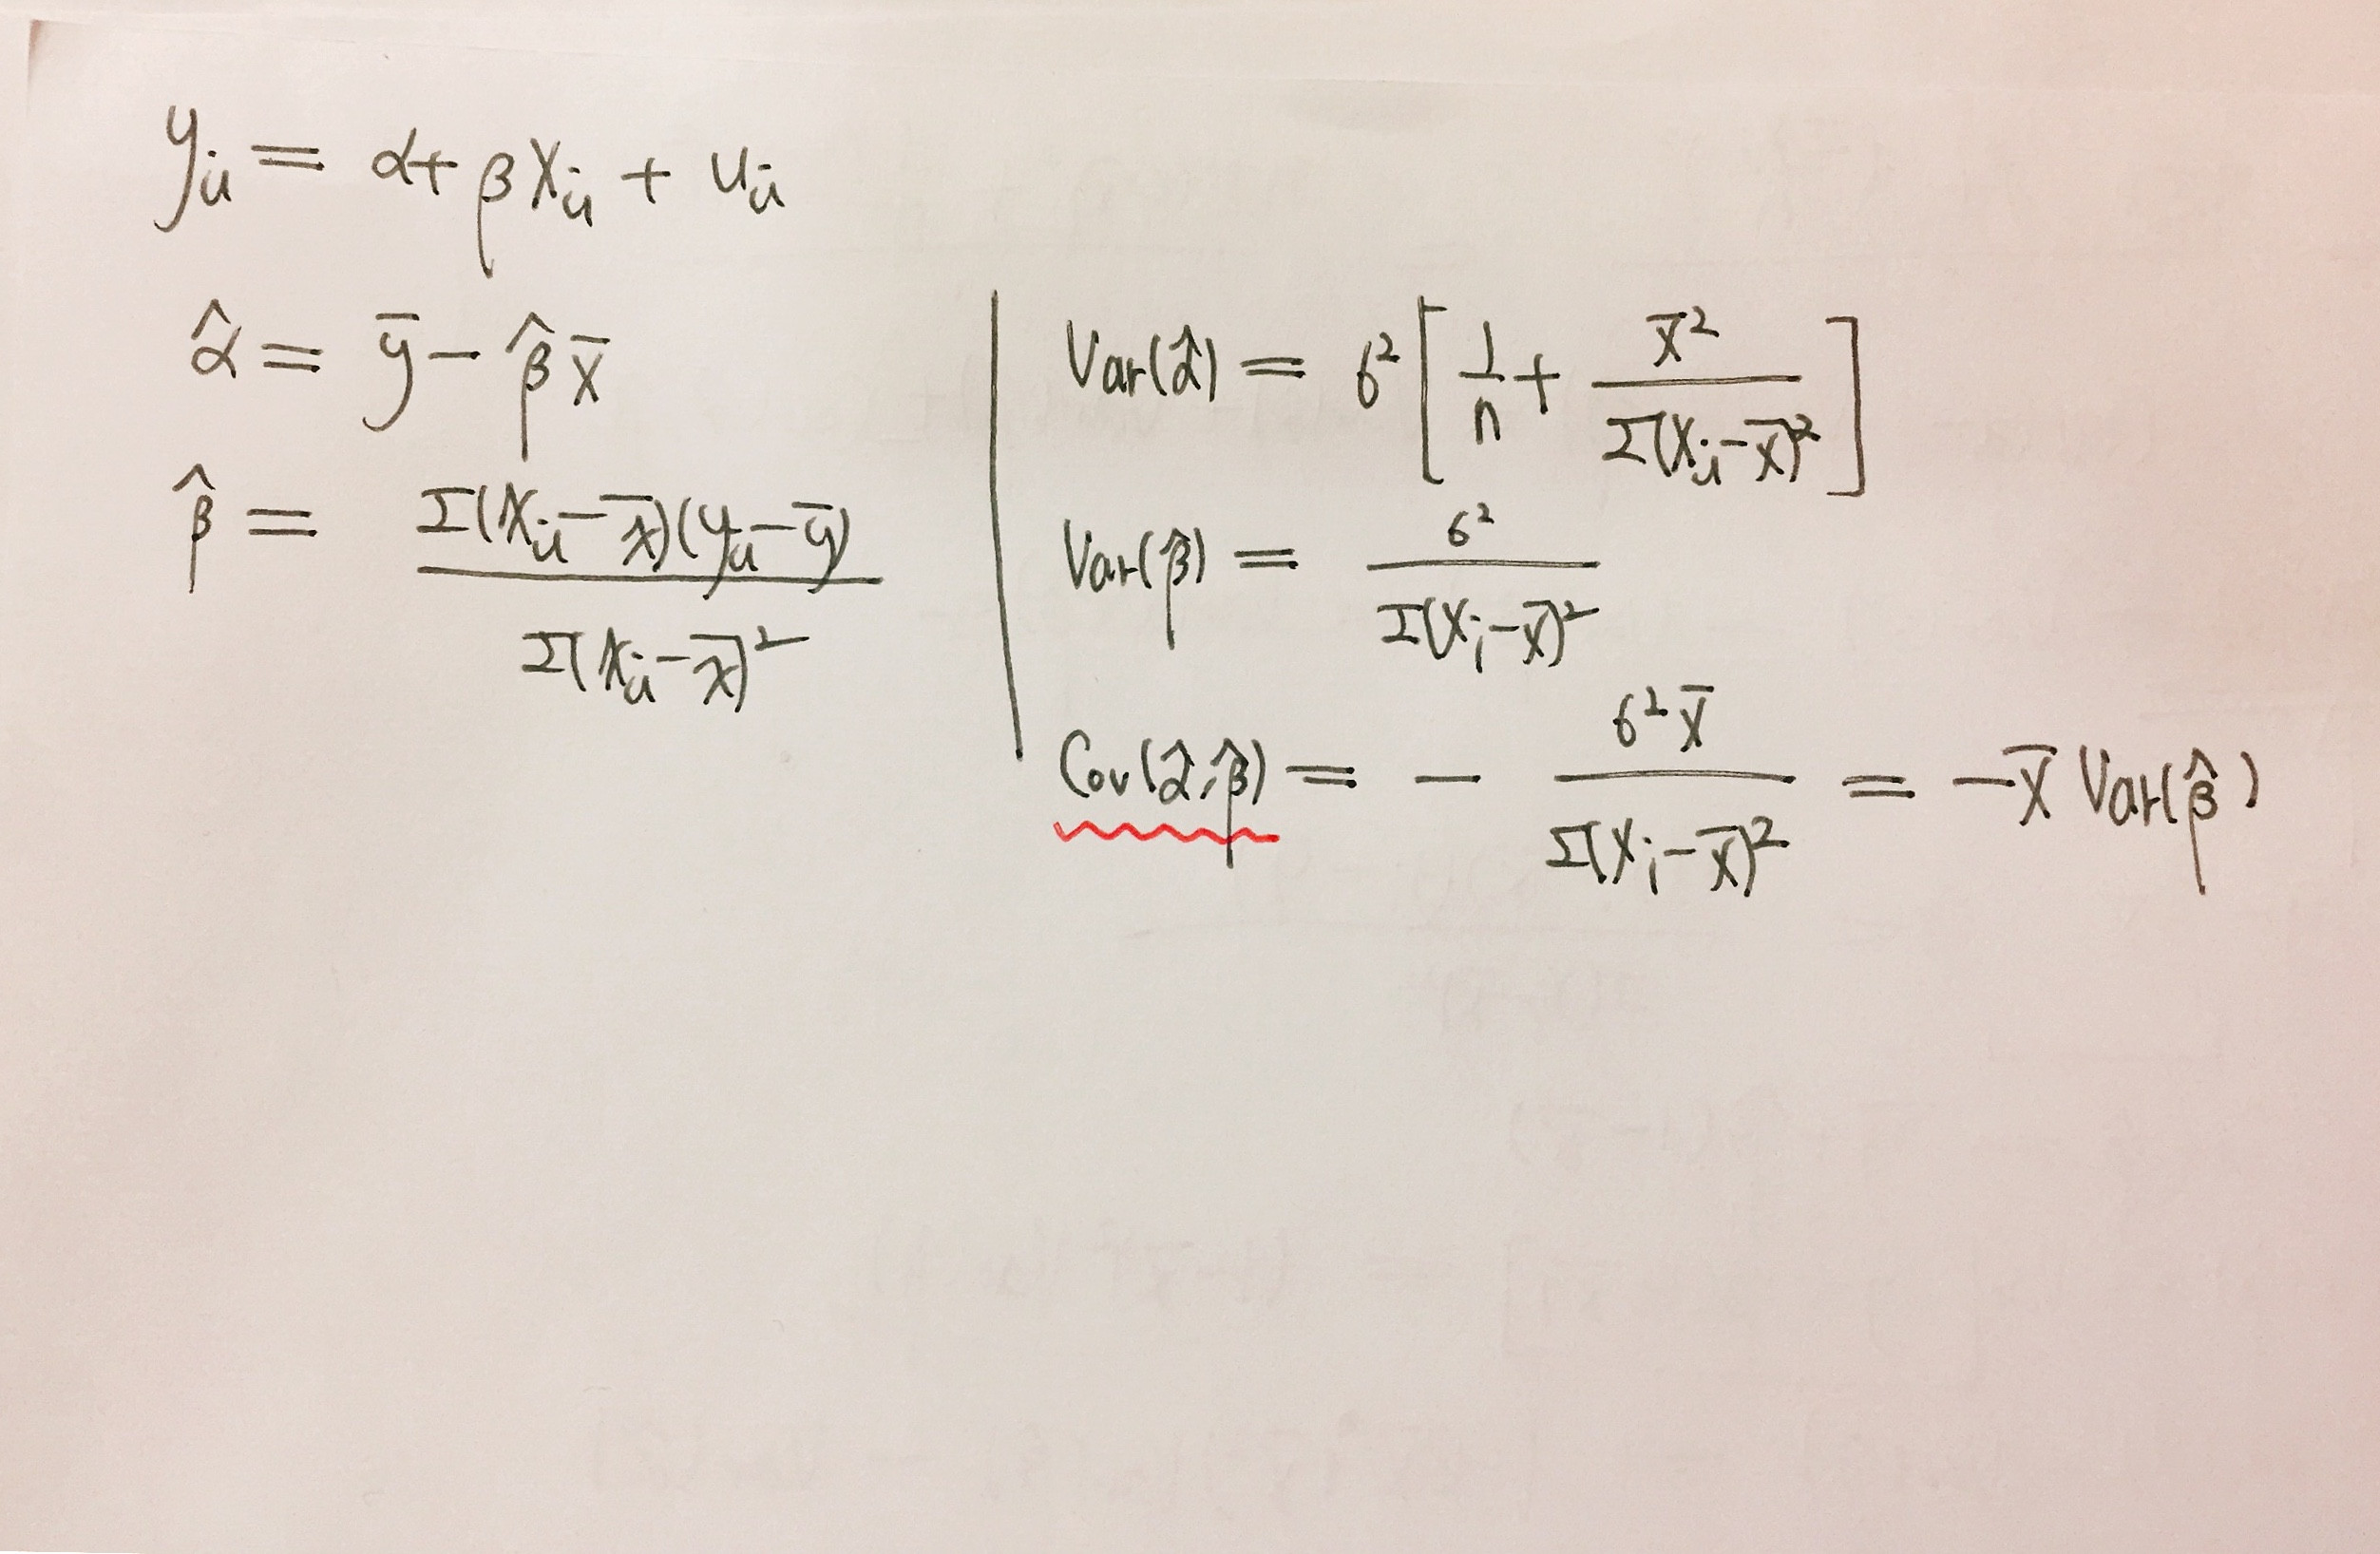 yᵢ = α + βxᵢ + uᵢ
α̂ = ȳ − β̂x̄
β̂ = Σ(xᵢ−x̄)(yᵢ−ȳ) / Σ(xᵢ−x̄)²
Var(α̂) = σ² [ 1/n + x̄² / Σ(xᵢ−x̄)² ]
Var(β̂) = σ² / Σ(xᵢ−x̄)²
Cov(α̂, β̂) = − σ²x̄ / Σ(xᵢ−x̄)² = −x̄ Var(β̂)